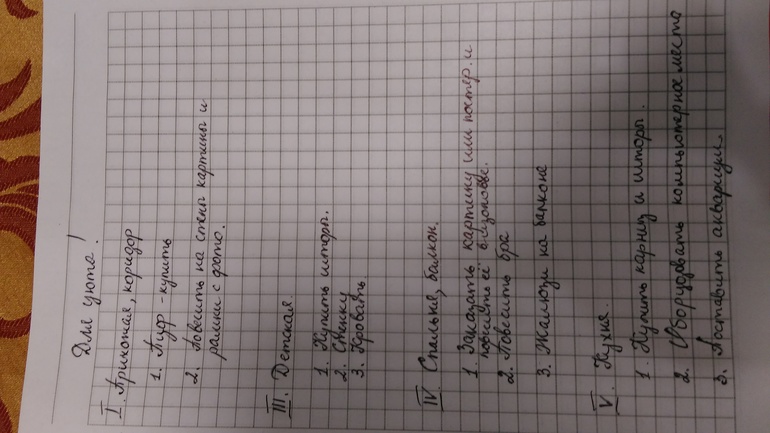 Для уюта!
I. Прихожая, коридор
1. Пуф - купить
2. Повесить на стены картины и
рамки с фото.
III. Детская
1. Купить шторы.
2. Стенку
3. Кровать
IV. Спальня, балкон.
1. Заказать картину или постер. и
повесить её в изголовье.
2. Повесить бра
3. Жалюзи на балконе
V. Кухня.
1. Купить карниз и шторы.
2. Оборудовать компьютерное место
3. Поставить аквариум.